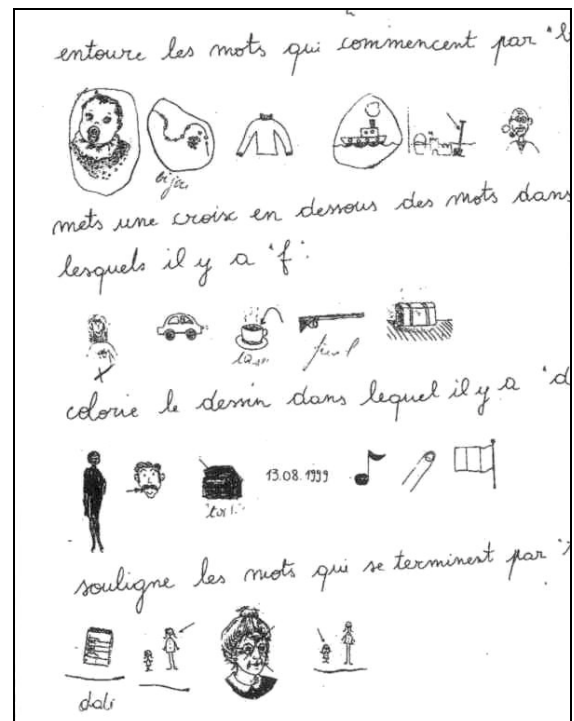 entoure les mots qui commencent par "b
bijou
mets une croix en dessous des mots dans
lesquels il y a 'f'.
fusil
colorie le dessin dans lequel il y a 'd
13.08.1999
souligne les mots qui se terminent par